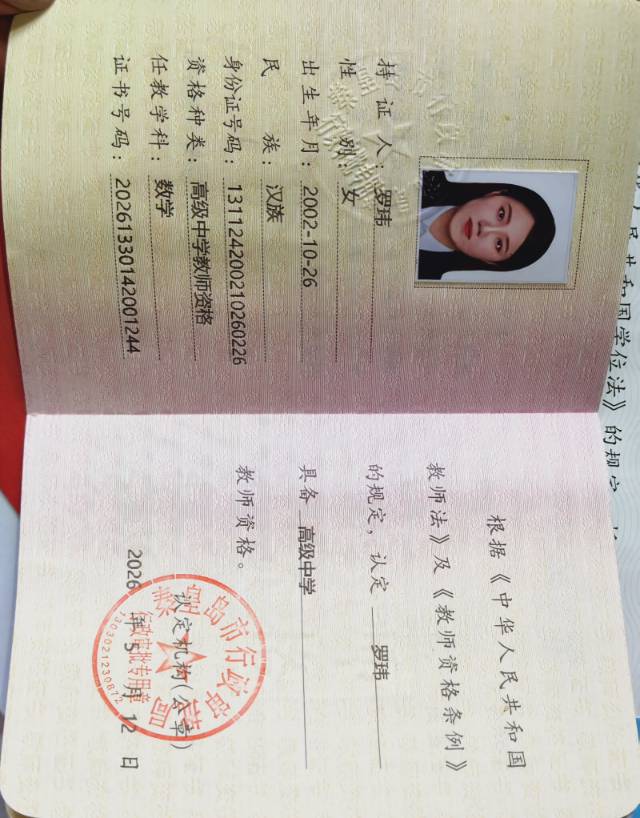 持证人：罗玮
性别：女
出生年月：2002-10-26
民族：汉族
身份证号码：131124200210260226
资格种类：高级中学教师资格
任教学科：数学
证书号码：20261330142001244
根据《中华人民共和国
教师法》及《教师资格条例》
的规定，认定 罗玮
具备 高级中学
教师资格。
认定机构(公章)
2026年5月12日
秦皇岛市行政审批局
行政审批专用章
1303021230672
人民共和国学位法》的规定